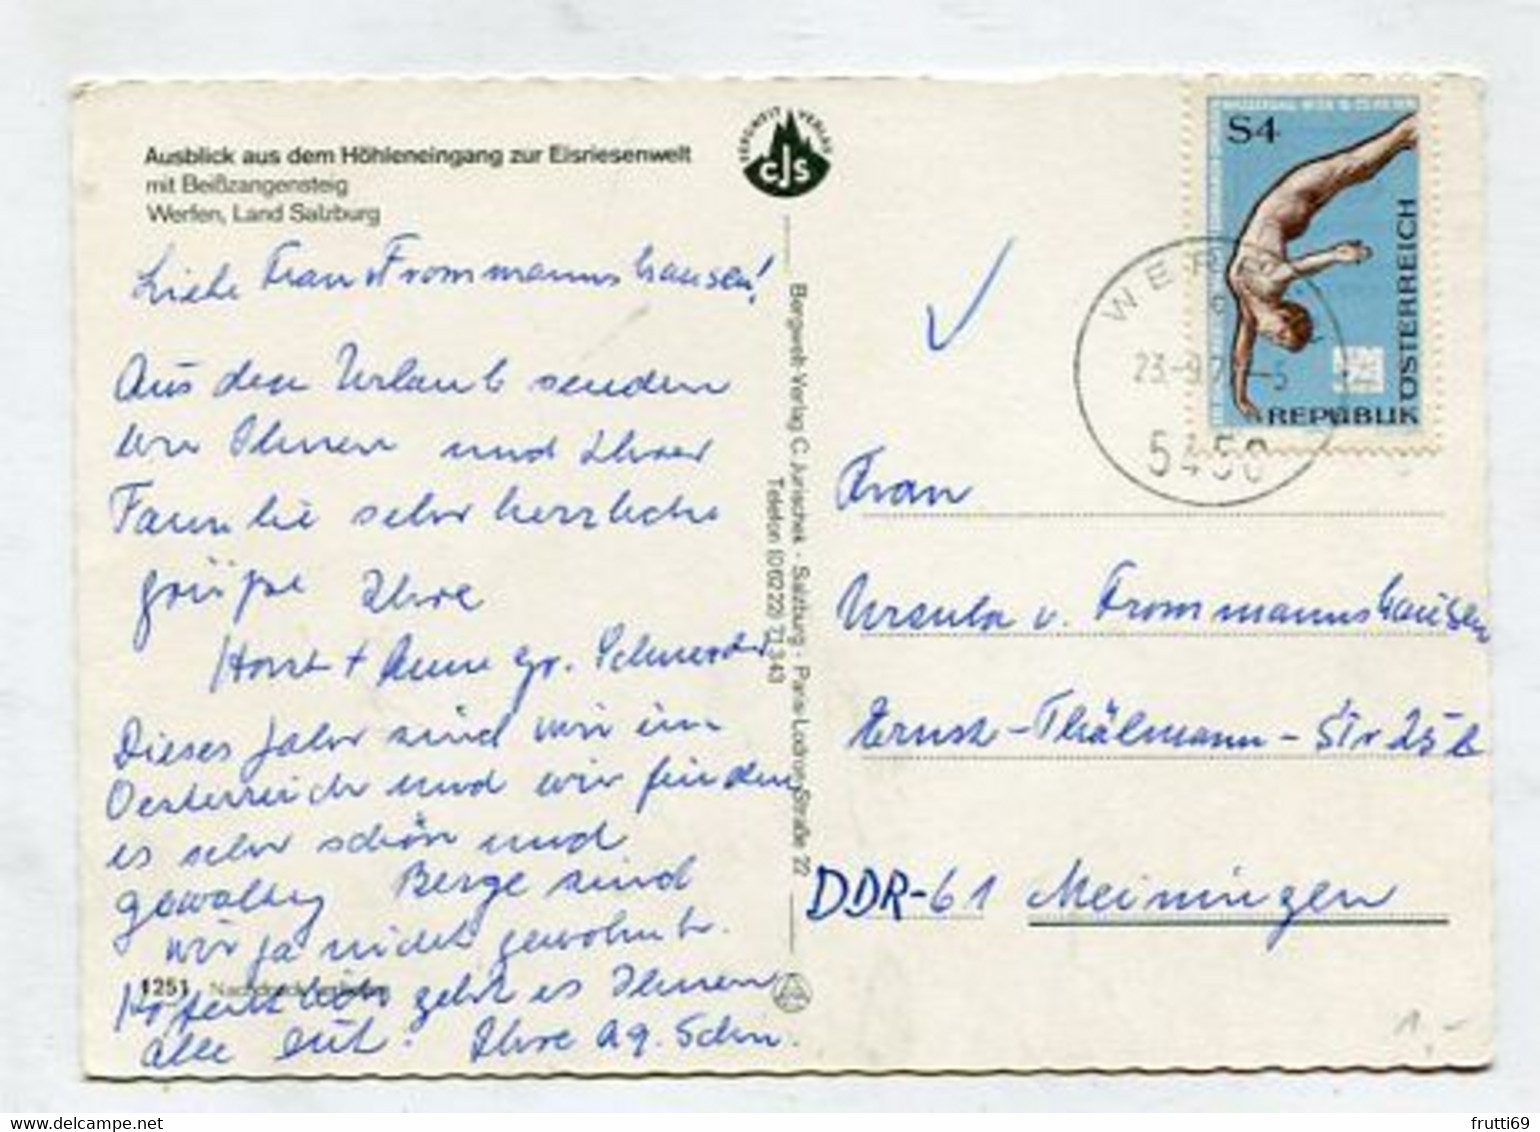 Ausblick aus dem Höhleneingang zur Eisriesenwelt
mit Beißzangensteig
Werfen, Land Salzburg
Liebe Frau v Frommannshausen!
Aus dem Urlaub senden
wir Ihnen und Ihrer
Familie sehr herzliche
grüße Ihre
Horst + Anne gr.
Dieses Jahr sind wir in
Oesterreich und wir finden
es sehr schön und
gewaltig Berge sind
wir ja nicht gewohnt.
Hoffentlich geht es Ihnen
alle gut. Ihre
1251
BERGWELT VERLAG
CJS
Bergwelt-Verlag C. Jurischek - Salzburg - Paris-Lodron-Straße 22
Telefon (06222) 71343
S4
REPUBLIK ÖSTERREICH
5450
Frau
Ursula v. Frommannshausen
Ernst-Thälmann-Str 25b
DDR-61 Meiningen
1,-
frutti69